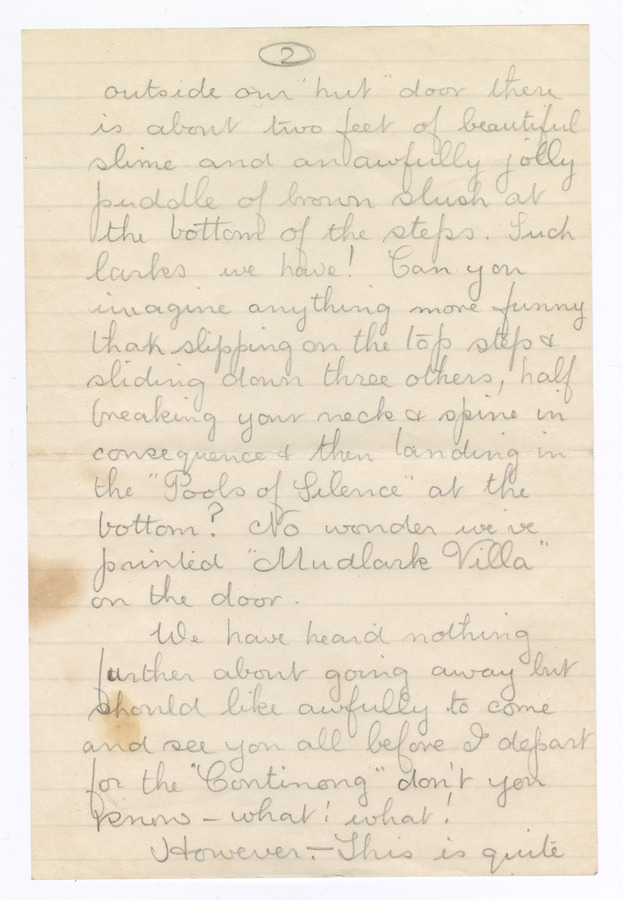 2
outside our "hut" door there
is about two feet of beautiful
slime and an awfully jolly
puddle of brown slush at
the bottom of the steps. Such
larks we have! Can you
imagine anything more funny
than slipping on the top step &
sliding down three others, half
breaking your neck & spine in
consequence & then landing in
the "Pools of Silence" at the
bottom? No wonder we've
painted "Mudlark Villa"
on the door.
We have heard nothing
further about going away but
should like awfully to come
and see you all before I depart
for the "Continong" don't you
know - what! what!
However. - This is quite